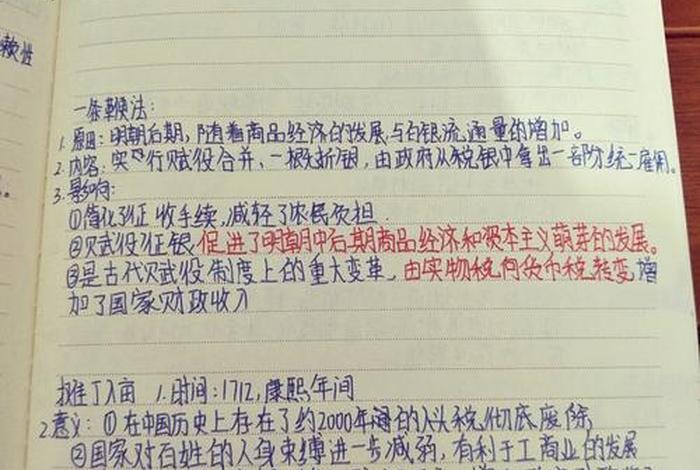 赖性
一条鞭法:
1.原因:明朝后期,随着商品经济的发展与白银流通量的增加。
2.内容:实行赋役合并、一概折银,由政府从税银中拿出一部分统一雇佣。
3.影响:
①简化了征收手续,减轻了农民负担.
②赋役征银促进了明朝中后期商品经济和资本主义萌芽的发展。
③是古代赋役制度上的重大变革,由实物税向货币税转变,增
加了国家财政收入
摊丁入亩 1.时间:1712,康熙年间
2.意义:①在中国历史上存在了约2000年的人头税彻底废除,
②国家对百姓的人身束缚进一步减弱,有利于工商业的发展